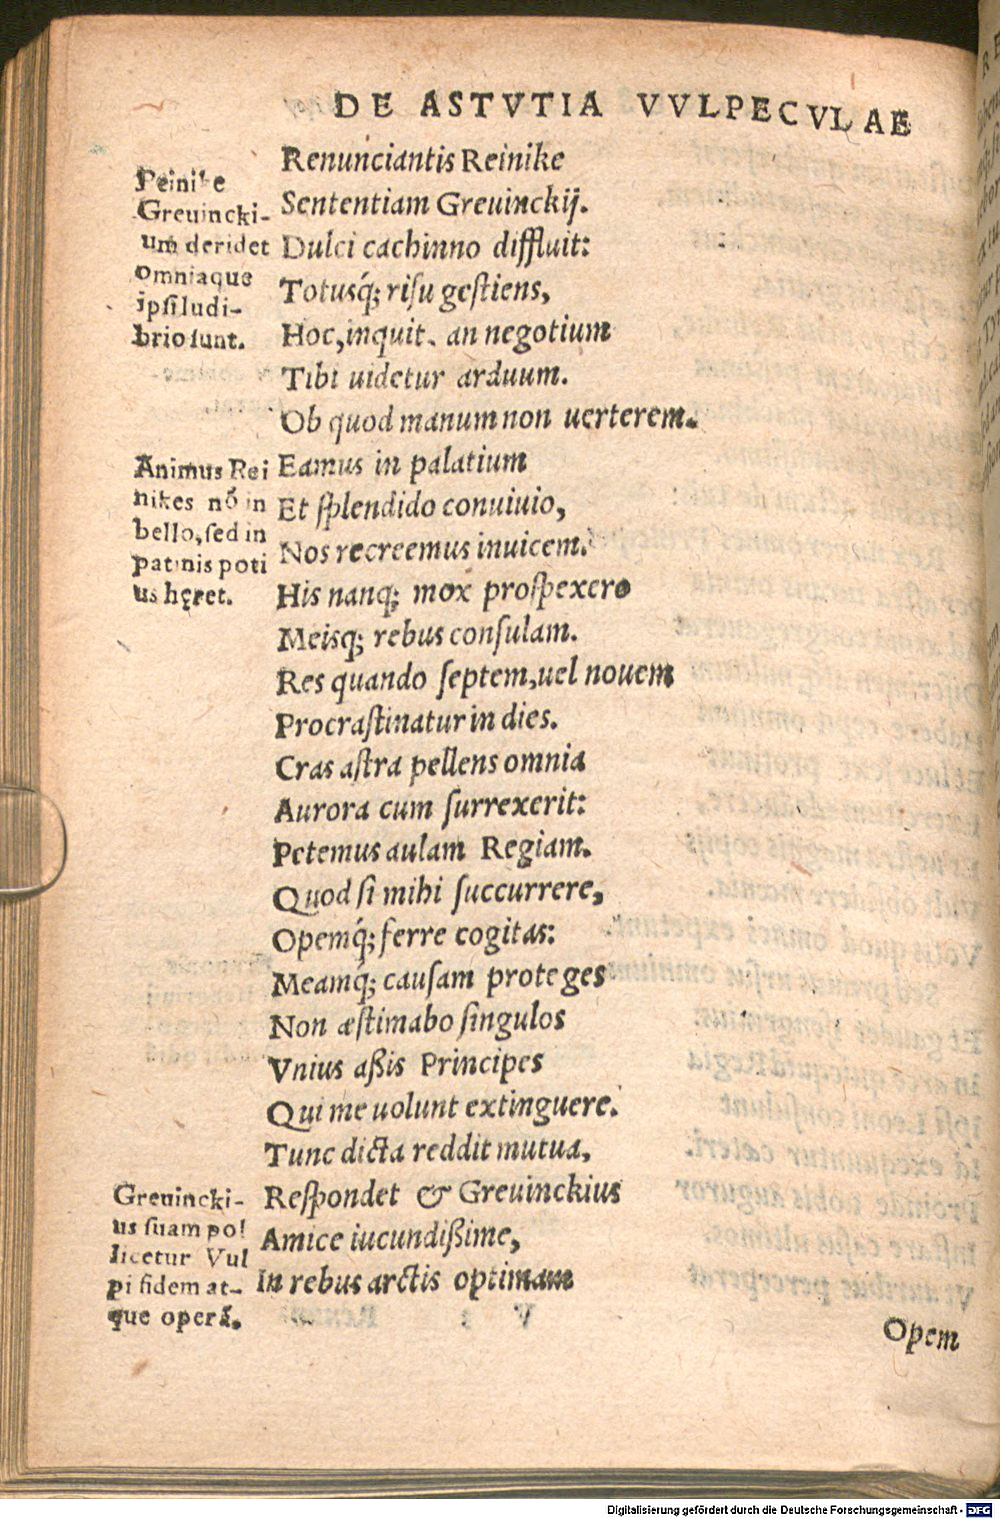 DE ASTVTIA VVLPECVLAE
Renunciantis Reinike
Sententiam Greuinckij.
Dulci cachinno diffluit:
Totusq́; risu gestiens,
Hoc, inquit, an negotium
Tibi uidetur arduum.
Ob quod manum non uerterem.
Eamus in palatium
Et splendido conuiuio,
Nos recreemus inuicem.
His nanq; mox prospexero
Meisq; rebus consulam.
Res quando septem, uel nouem
Procrastinatur in dies.
Cras astra pellens omnia
Aurora cum surrexerit:
Petemus aulam Regiam.
Quod si mihi succurrere,
Opemq́; ferre cogitas:
Meamq́; causam proteges
Non æstimabo singulos
Vnius aßis Principes
Qui me uolunt extinguere.
Tunc dicta reddit mutua,
Respondet & Greuinckius
Amice iucundißime,
In rebus arctis optimam
Opem
Reinike
Greuincki-
um deridet
omniaque
ipsi ludi-
brio sunt.
Animus Rei
nikes nō in
bello, sed in
patinis poti
us hęret.
Greuincki-
us suam pol
licetur Vul
pi fidem at-
que operā.
Digitalisierung gefördert durch die Deutsche Forschungsgemeinschaft - DFG